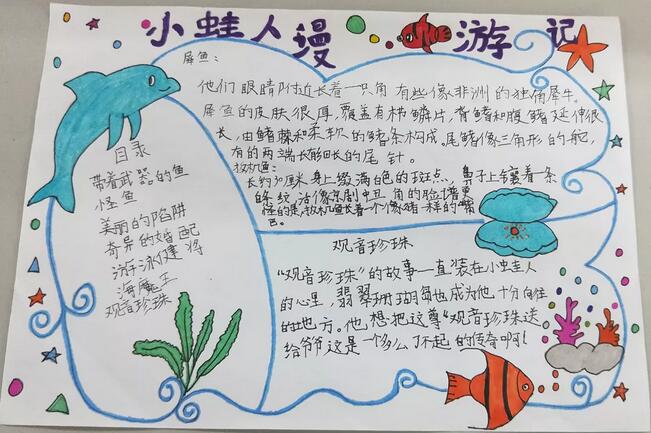 小蛙人漫游记
犀鱼：
他们眼睛附近长着一只角有些像非洲的独角犀牛。
犀鱼的皮肤很厚，覆盖有栉鳞片，背鳍和腹鳍延伸很
长，由鳍棘和柔软的鳍条构成。尾鳍像三角形的舵，
有的两端长有细长的尾针。
长约30厘米，身上缀满白色的斑点，鼻子上镶着一条
白条纹活像京剧中丑角的脸谱更
怪的是
长着一个像猪一样的嘴
巴。
目录
带着武器的鱼
怪鱼
美丽的陷阱
奇异的婚配
游泳健将
海魔王
观音珍珠
观音珍珠
“观音珍珠”的故事一直装在小蛙人
的心里，翡翠珊瑚岛也成为他十分向往
的地方。他想把这尊“观音珍珠送
给爷爷这是一个多么了不起的传奇啊！